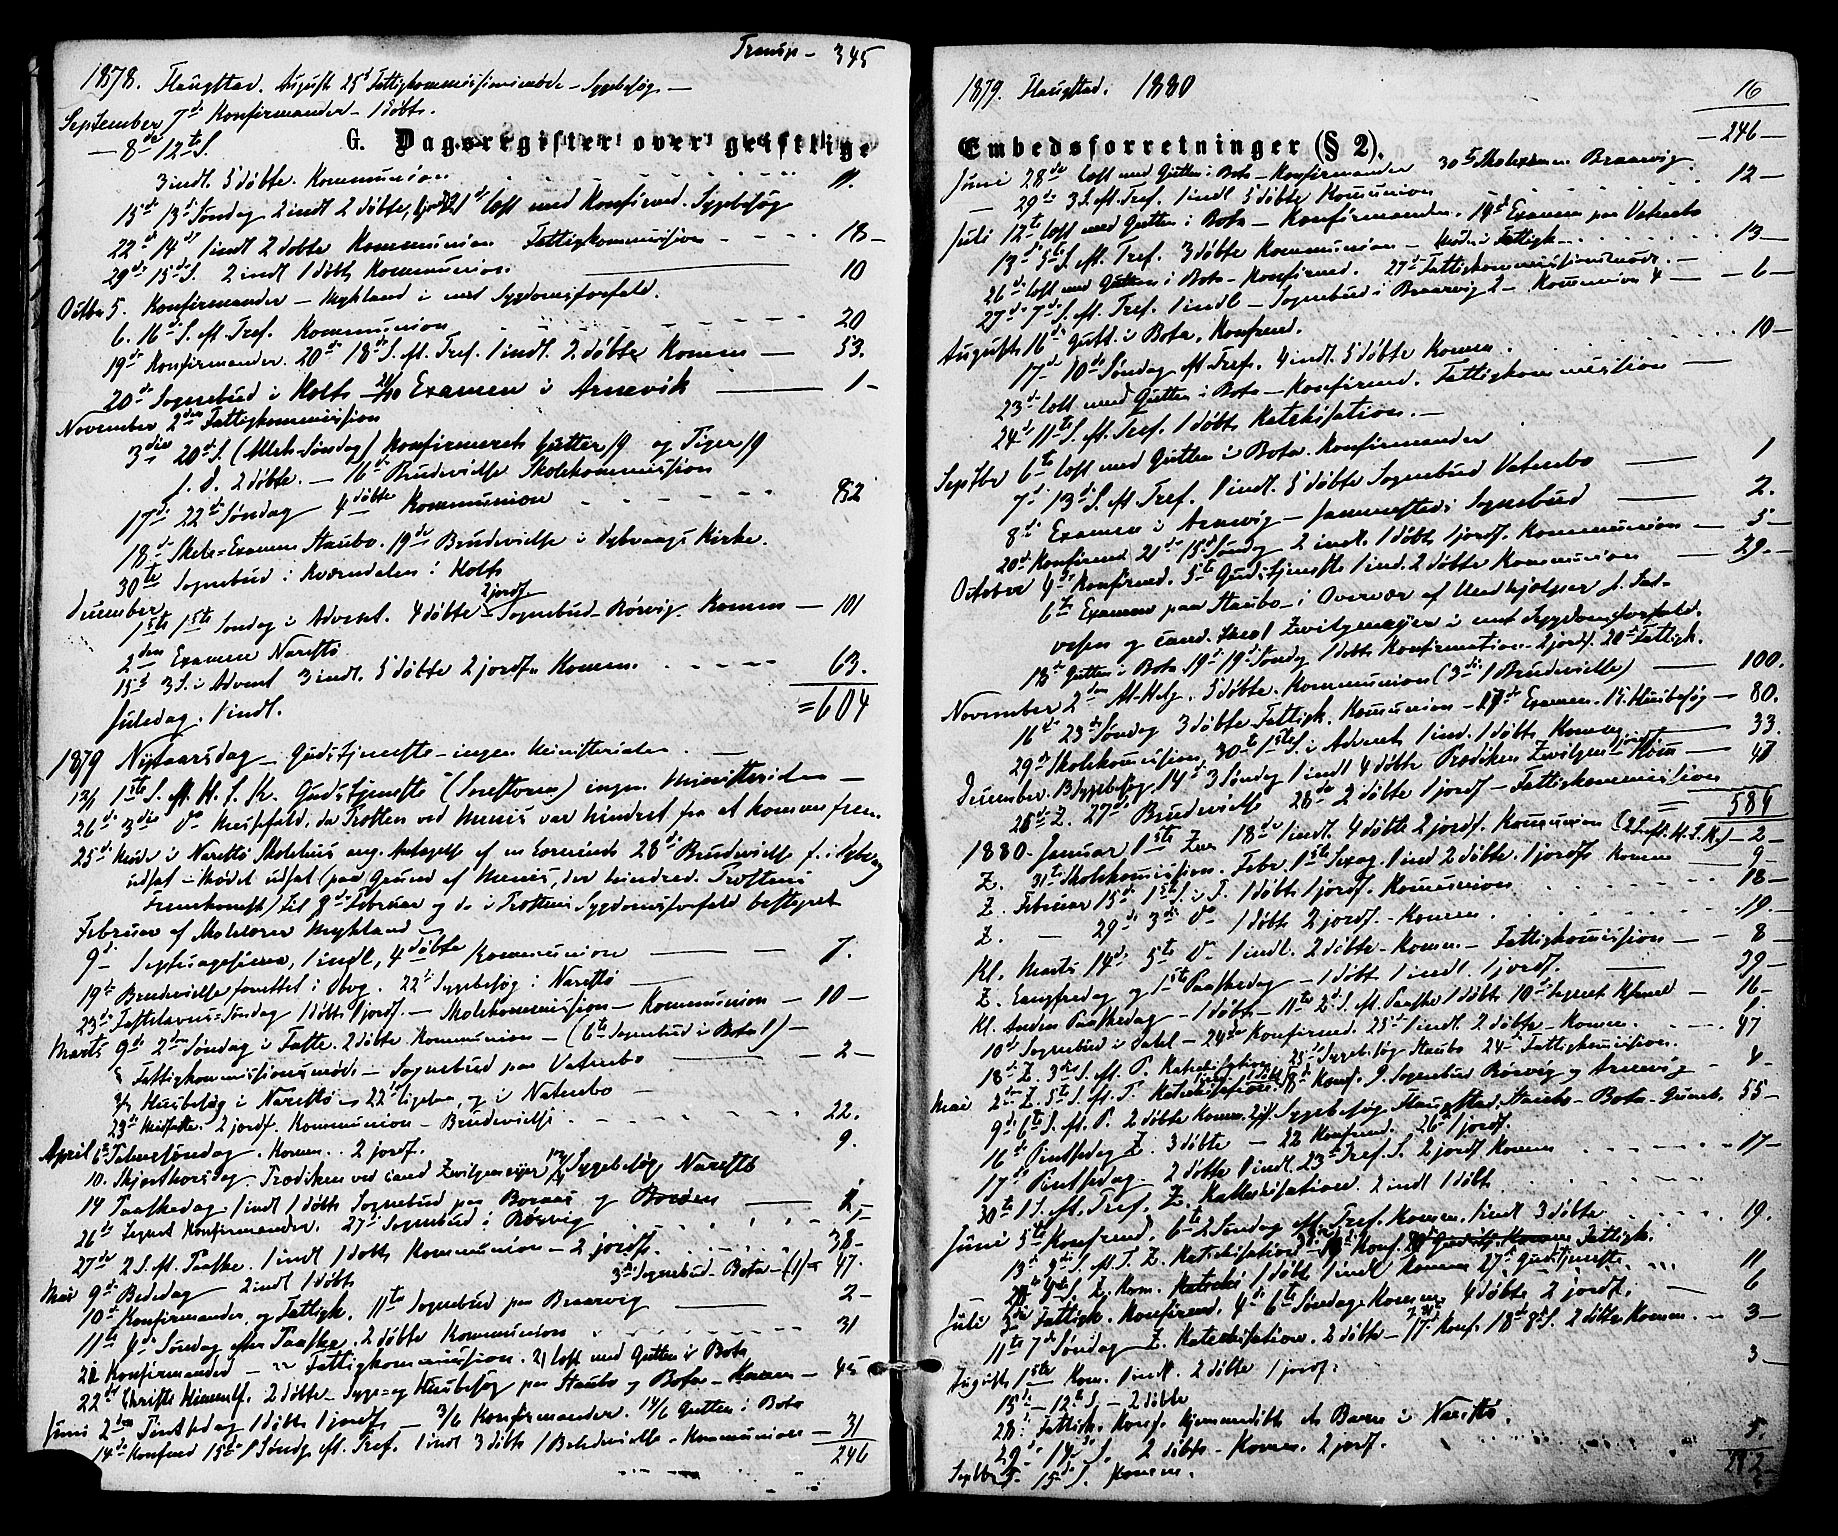 Transp – 345
1878. Flaugstad. August 25d Fattigkommissionsmøde – Sygebesøg –
September 7de Konfirmander – 1 døbt.
– 8de 12te S.
G. Dagsregister over geistlige
3 indl. 5 døbte. Kommunion 11.
15de 13de Søndag 2 indl 2 døbte, 1 jordf. 21d løst med Konfirmd. Sygebesøg
22de 14de 1 indl 2 døbte Kommunion Fattigkommission 18 –
29de 15de S. 2 indl 1 døbt Kommunion 10
Octbr 5. Konfirmander – Myhland i mit Sygdomsforfald.
6. 16de S. eft. Tref. Kommunion 20
19de Konfirmander. 20de 18de S. eft. Tref. 1 indl. 2 døbte Komm – 53.
20de Sognebud i Holt – 21/10 Examen i Arnevik 1 –
November 2den Fattigkommission
3die 20de S. (Alleh. Søndag) Konfirmeret Gutter 19 og Piger 19
1. d. 2 døbte. – 16de Brudevielse Skolekommission
17de 22de Søndag 4 døbte Kommunion 82
18de Skole-Examen Staubo. 19de Brudevielse i Dybvaags Kirke.
30te Sognebud i Kværndalen i Holt
December
1ste 1ste Søndag i Advent. 4 døbte 2 jordf – Sognebud Börvig. Komm – 101
2den Examen Narestö
15de 3 S. i Advent 3 indl. 5 døbte 2 jordf. Komm. 63.
Juledag. 1 indl. = 604
1879 Nytaarsdag – Gudstjeneste – ingen Ministerialia. –
12/1 1ste S. eft. H. 3. K. Gudstjeneste ingen Ministerialia –
26de 3die do Messefald, da Prosten ved Menis var hindret fra at komme frem.
25de Møde i Narestö Skolehus ang. Antagelse af en Lærerinde 28de Brudevielse f. i Dybvaag
udsat – Mødet udsat (paa Grund af Menis, der hindred. Prostens
Fremkomst) til 8de Februar og da i Prostens Sygdomsforfald bestyret
Februar af Skolelærer Myhland –
9de Septuagesima, 1 indl, 4 døbte Kommunion 7.
19te Brudevielse forrettet i Dbvg. 22de Sygebesøg i Narestö
23de Fastelavns-Søndag 1 døbt 1 jordf. – Skolekommission – Kommunion – 10 –
Marts 9de 2den Søndag i Faste. 2 døbte Kommunion – (6te Sognebud i Bota 1) –
Fattigkommissionsmøde – Sognebud paa Vatnebo 2 –
Husbesøg i Narestö – 22de ligeledes og i Vatnebo –
23de Midfaste. 2 jordf. Kommunion – Brudevielse 22.
April 6te Palmesøndag. Komm. . 2 jordf. 9.
10. Skjærthorsdag – Prædiken ved cand Zwilgmeyer Sygebesøg Narestö
14 Paaskedag 1 indl 1 døbt Sognebud paa Bornæs og Borøen 2,
26de Læset Konfirmander. 27de Sognebud i Börvig 1 –
27de 2 S. eft. Paaske 1 indl 1 døbt Kommunion – 2 jordf. 38 –
Mai 9de Bededag 2 indl 1 døbt 3de Sognebud – Bota – (1) – 47.
10de Konfirmander og Fattigk. 11te Sognebud paa Braarvig 2 –
11te 4de Søndag efter Paaske. 2 døbte Kommunion 31
21 Konfirmander – Fattigkommission. 21 løst med Gutten i Bota
22de Christi Himmelf. 2 døbte – Syge- og Husbesøg paa Staubo og Bota – Komm – 45
Juni 2den Pintsedag 1 døbt 1 jordf – 3/6 Konfirmander. 14/6 Gutten i Bota
14de Konfmd 15de 1 Søndg eft. Tref. 1 indl 3 døbt 1 Brudevielse – Kommunion – 31
246
1879. Flaugstad. 1880 16
– 246 –
Embedsforretninger (§ 2).
Juni 28de løst med Gutten i Bota – Konfirmander 30te Skolexamen Braarvig.
– 29de 3 S. eft. Tref. 1 indl 5 døbte Kommunion 12 –
Juli 12te løst med Gutten i Bota – Konfirmander. 14de Examen paa Vatnebo
13de 5te S. eft. Tref. 3 døbte Kommunion – Møde i Fattigk. 13 –
26de løst med Gutten i Bota – Konfirmd. 27de Fattigkommissionsmøde. –
27de 7de S. eft. Tref. 1 indl – Sognebud i Braarvig 2 – Kommunion 4 – 6 –
August 16de Gutt. i Bota. Konfirmd.
17de 10de Søndag eft. Tref. 4 indl. 5 døbte Komm. 10 –
23de løst med Gutten i Bota – Konfirmd. Fattigkommission
24de 11te S. eft. Tref. 1 døbt Katekisation. –
Septbr 6te løst med Gutten i Bota. Konfirmander
7de 13de S. eft Tref. 1 indl. 5 døbte Sognebud Vatnebo 1
8de Examen i Arnevig – Sognebud 2.
20de Konfirmd 21de 15de Søndag 2 indl. 1 døbt 1 jordf. Kommunion – 5 –
October 4de Konfirmd. 5te Gudstjeneste 1 ind. 2 døbte Kommunion 29. –
6te Examen paa Staubo i Overvær af Medhjælper f. Fat-
vesen og Cand. theol Zwilgmeyer i mit Sygdomsforfald.
18de Gutten i Bota 19de 19de Søndag 1 døbt Konfirmation – 2 jordf. 20de Fattigk.
November 2den Al. Helg. 5 døbte. Kommunion (3die 1 Brudevielse) 100.
16de 23de Søndag 3 døbte Fattigk. Kommunion – 17de Examen. 19. Husbesøg – 80.
29de Skolekomission, 30te 1ste S. i Advent 1 ind. 1 døbt Komm 33.
December. 13 Sygebesøg. 14de 3 Søndag 1 indl 4 døbte Prædiken Zwilgm – 1 jordf. Kom – 48
25de Z. 27de Brudevielse 28de 2 døbte 1 jordf – Fattigkommission
584
1880. Januar 1ste Zw. 18de 1 indl. 4 døbte 2 jordf. Kommunion (2 S. eft. H. 3. K.) – 2 –
Z. 31te Skolekomission. Febr. 1ste Sexag. 1 ind 2 døbte. 1 jordf. Komm 9 –
Z. Februar 15de 1ste S. i F. 1 døbt 1 jordf. Kommunion 18 –
Z. – 29de 3de do 1 døbt 2 jordf. – Komm. 19. –
Kl. Marts 14de 5te do 1 indl. 2 døbte – Komm. – Fattigkomission – 8 –
Z. Langfredag og 1ste Paaskedag – 1 døbt 1 indl. 1 jordf. 39 –
Kl. Anden Paaskedag – 1 døbt – 11te 2de S. eft Paaske 1 døbt 10de læset Kfmd – 16 –
10de Sognebud i – 24de Konfirmd. 25de 1 indl. 2 døbte – Komm. 47
18de Z. 3die S. eft. P. Katekisation 25de Sygebesøg Staubo 24de Fattigkomission.
Mai 2den Z. 5te S. eft. P. Katekisation. 8de Konf. 9. Sognebud Börvig og Arnevig – 4 –
9de 6te S. eft. P. 2 døbte Komm. 2 jf. Sygebesøg Flaugstad, Staubo – Bota – 55 –
16de Pintsedag Z. 3 døbte – 22 Konfirmd. 26de 1 jordf.
17de Pintsedag 2 døbte 1 indl. 23de Tref. S. 2 jordf Komm 17 –
30te 1 S. eft. Tref. Z. Katekisation. 2 indl 1 døbt
Juni 5te Konfirmd. 6te 2 Søndag eft. Tref. Komm. 1 indl 3 døbte 19.
13de 3de S. eft. T. Z. Katekisation – Konf. Fattigk.
20de Z. Kom. 1 døbt 1 indl Komm 27de Gudstjeneste. 11
Juli 3die Fattigk. Konfirmd. 4de 6te Søndag. Komm. 4 døbte 2 jordf. 6
11te 7de Søndag Z. Katekisation. 2 døbte – 17de Konf. 18de 8de S. 2 døbte Komm. 3 –
August 1ste Kom. 1 indl. 2 døbte 1 jordf. 3 –
15de – 12te S. – 2 døbte
28de Fattigk. Konf. hjemmedøbt et Barn i Narestö.
29de 14de S. 2 døbte – Komm. 2 jordf. 5.
Septbr 5. 15de S. Komm. 282